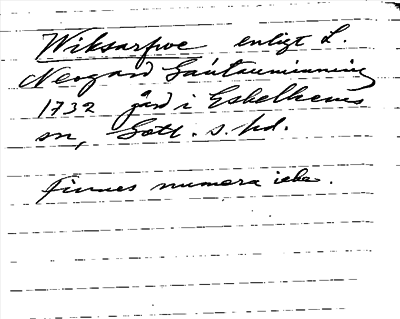 Wiksarfwe enligt L.
Neogard Gautauminning
1732 gård i Eskelhems
sn, Gotl. s. hd.
Finnes numera icke.